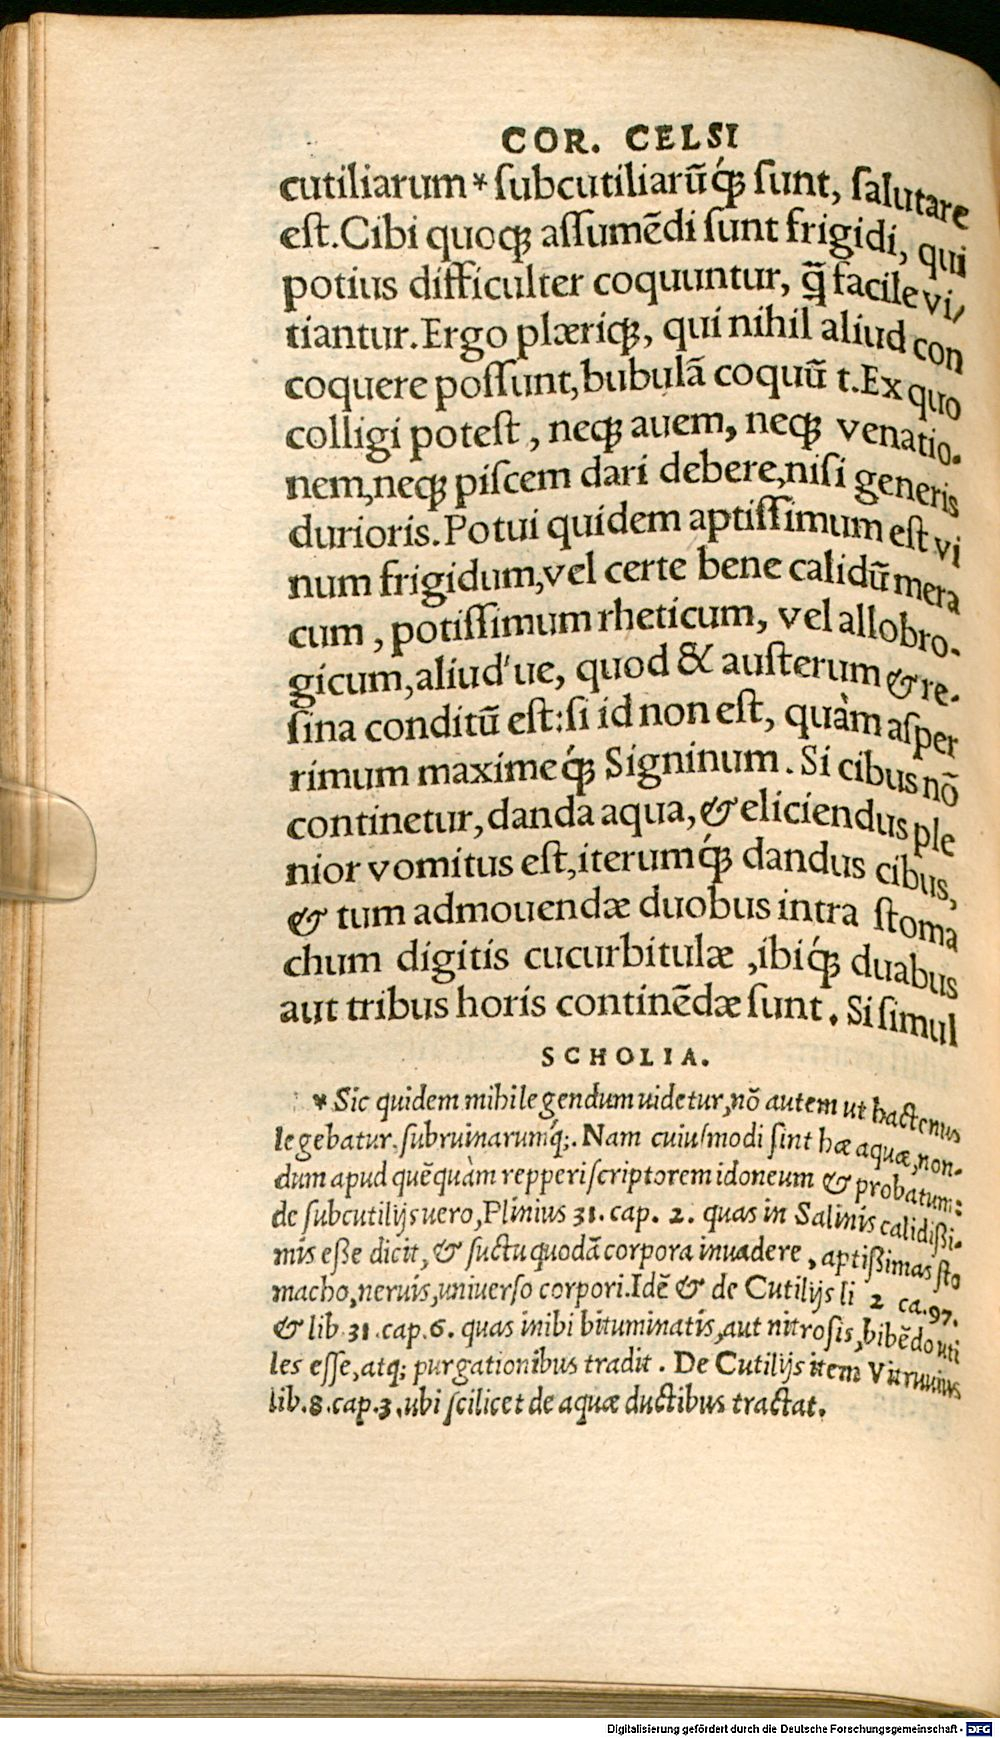 COR. CELSI
cutiliarum * ſubcutiliarũq́ꝫ ſunt, ſalutare
eſt. Cibi quoqꝫ aſſumẽdi ſunt frigidi, qui
potius difficulter coquuntur, q̃ facile vi/
tiantur. Ergo plæriqꝫ, qui nihil aliud con
coquere poſſunt, bubulã coquũ t. Ex quo
colligi poteſt, neqꝫ auem, neqꝫ venatio-
nem, neqꝫ piſcem dari debere, niſi generis
durioris. Potui quidem aptiſſimum eſt vi
num frigidum, vel certe bene calidũ mera
cum, potiſſimum rheticum, vel allobro-
gicum, aliud'ue, quod & auſterum & re-
ſina conditũ eſt: ſi id non eſt, quàm aſper
rimum maximeq́ꝫ Signinum. Si cibus nõ
continetur, danda aqua, & eliciendus ple
nior vomitus eſt, iterumq́ꝫ dandus cibus,
& tum admouendæ duobus intra ſtoma
chum digitis cucurbitulæ, ibiq́ꝫ duabus
aut tribus horis continẽdæ ſunt. Si ſimul
SCHOLIA.
* Sic quidem mihi legendum uidetur, nõ autem ut hactenus
legebatur, ſubruinarumq́;. Nam cuiuſmodi ſint hæ aquæ, non-
dum apud quẽquàm repperi ſcriptorem idoneum & probatum:
de ſubcutilijs uero, Plinius 31. cap. 2. quas in Salinis calidißi-
mis eße dicit, & ſuctu quodã corpora inuadere, aptißimas ſto
macho, neruis, uniuerſo corpori. Idẽ & de Cutilijs li 2 ca. 97.
& lib. 31. cap. 6. quas inibi bituminatis, aut nitroſis, bibẽdo uti
les eſſe, atq; purgationibus tradit. De Cutilijs item Vitruuius
lib. 8. cap. 3. ubi ſcilicet de aquæ ductibus tractat.
Digitalisierung gefördert durch die Deutsche Forschungsgemeinschaft - DFG